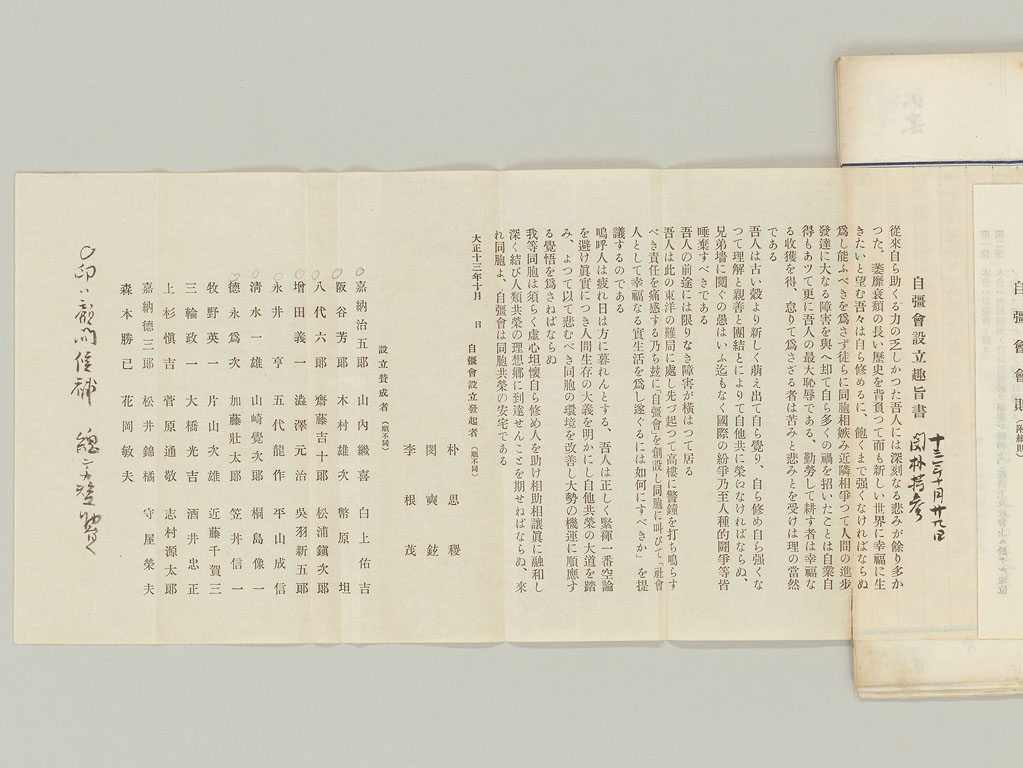 自彊會會則(附細則)
自彊會設立趣旨書
十三年十月廿九日
閔、朴持參
從來自ら助くる力の乏しかつた吾人には深刻なる悲みが餘り多か
つた。萎靡衰頽の長い歷史を背負つて而も新しい世界に幸福に生
きたいと望む吾々は自ら修めるに、飽くまで强くなければならぬ
爲し能ふべきを爲さず徒らに同胞相嫉み近隣相爭つて人間の進步
發達に大なる障害を與へ却て自ら多くの禍を招いたことは自業自
得もあツて更に吾人の最大恥辱である、勤勞して耕す者は幸福な
る收獲を得、怠りて爲さざる者は苦みと悲みとを受けは理の當然
である
吾人は古い殼より新しく萠え出て自ら覺り、自ら修め自ら强くな
つて理解と親善と團結とによりて自他共に榮ゐなければならぬ、
兄弟墻に鬩ぐの愚はいふ迄もなく國際の紛爭乃至人種的鬪爭等皆
唾棄すべきである
吾人の前途には限りなき障害が橫はつて居る
吾人は此の東洋の難局に處し先づ起つて高樓に警鐘を打ち鳴らす
べき責任を痛感する乃ち玆に「自彊會」を創設し同胞に叫びて「社會
人として幸福なる實生活を爲し遂ぐるには如何にすべきか」を提
議するのである
嗚呼人は疲れ日は方に暮れんとする、吾人は正しく緊褌一番空論
を避け眞實につき人間生存の大義を明かにし自他共榮の大道を踏
み、よつて以て悲むべき同胞の環境を改善し大勢の機運に順應す
る覺悟を爲さねばならぬ
我等同胞は須らく虛心坦懷自ら修め人を助け相助相讓眞に融和し
深く結び人類共榮の理想鄕に到達せんことを期せねばならぬ、來
れ同胞よ、自彊會は同胞共榮の安宅である
大正十三年十月　日　自彊會設立發起者(順不同)
朴思稷
閔奭鉉
李根茂
設立賛成者(順不同)
○嘉納治五郞　山内繼喜　白上佑吉
○阪谷芳郞　木村雄次　幣原坦
○八代六郞　齋藤吉十郞　松浦鎭次郞
○增田義一　澁澤元治　吳羽新五郞
○永井亨　五代龍作　平山成信
○淸水一雄　山崎覺次郞　桐島像一
○德永爲次　加藤壯太郞　笠井信一
牧野英一　片山次雄　近藤千賀三
三輪政一　大橋光吉　酒井忠正
上杉愼吉　菅原通敬　志村源太郞
嘉納德三郞　松井錦橘　守屋榮夫
森本勝巳　花岡敏夫
○印ハ顧問候補